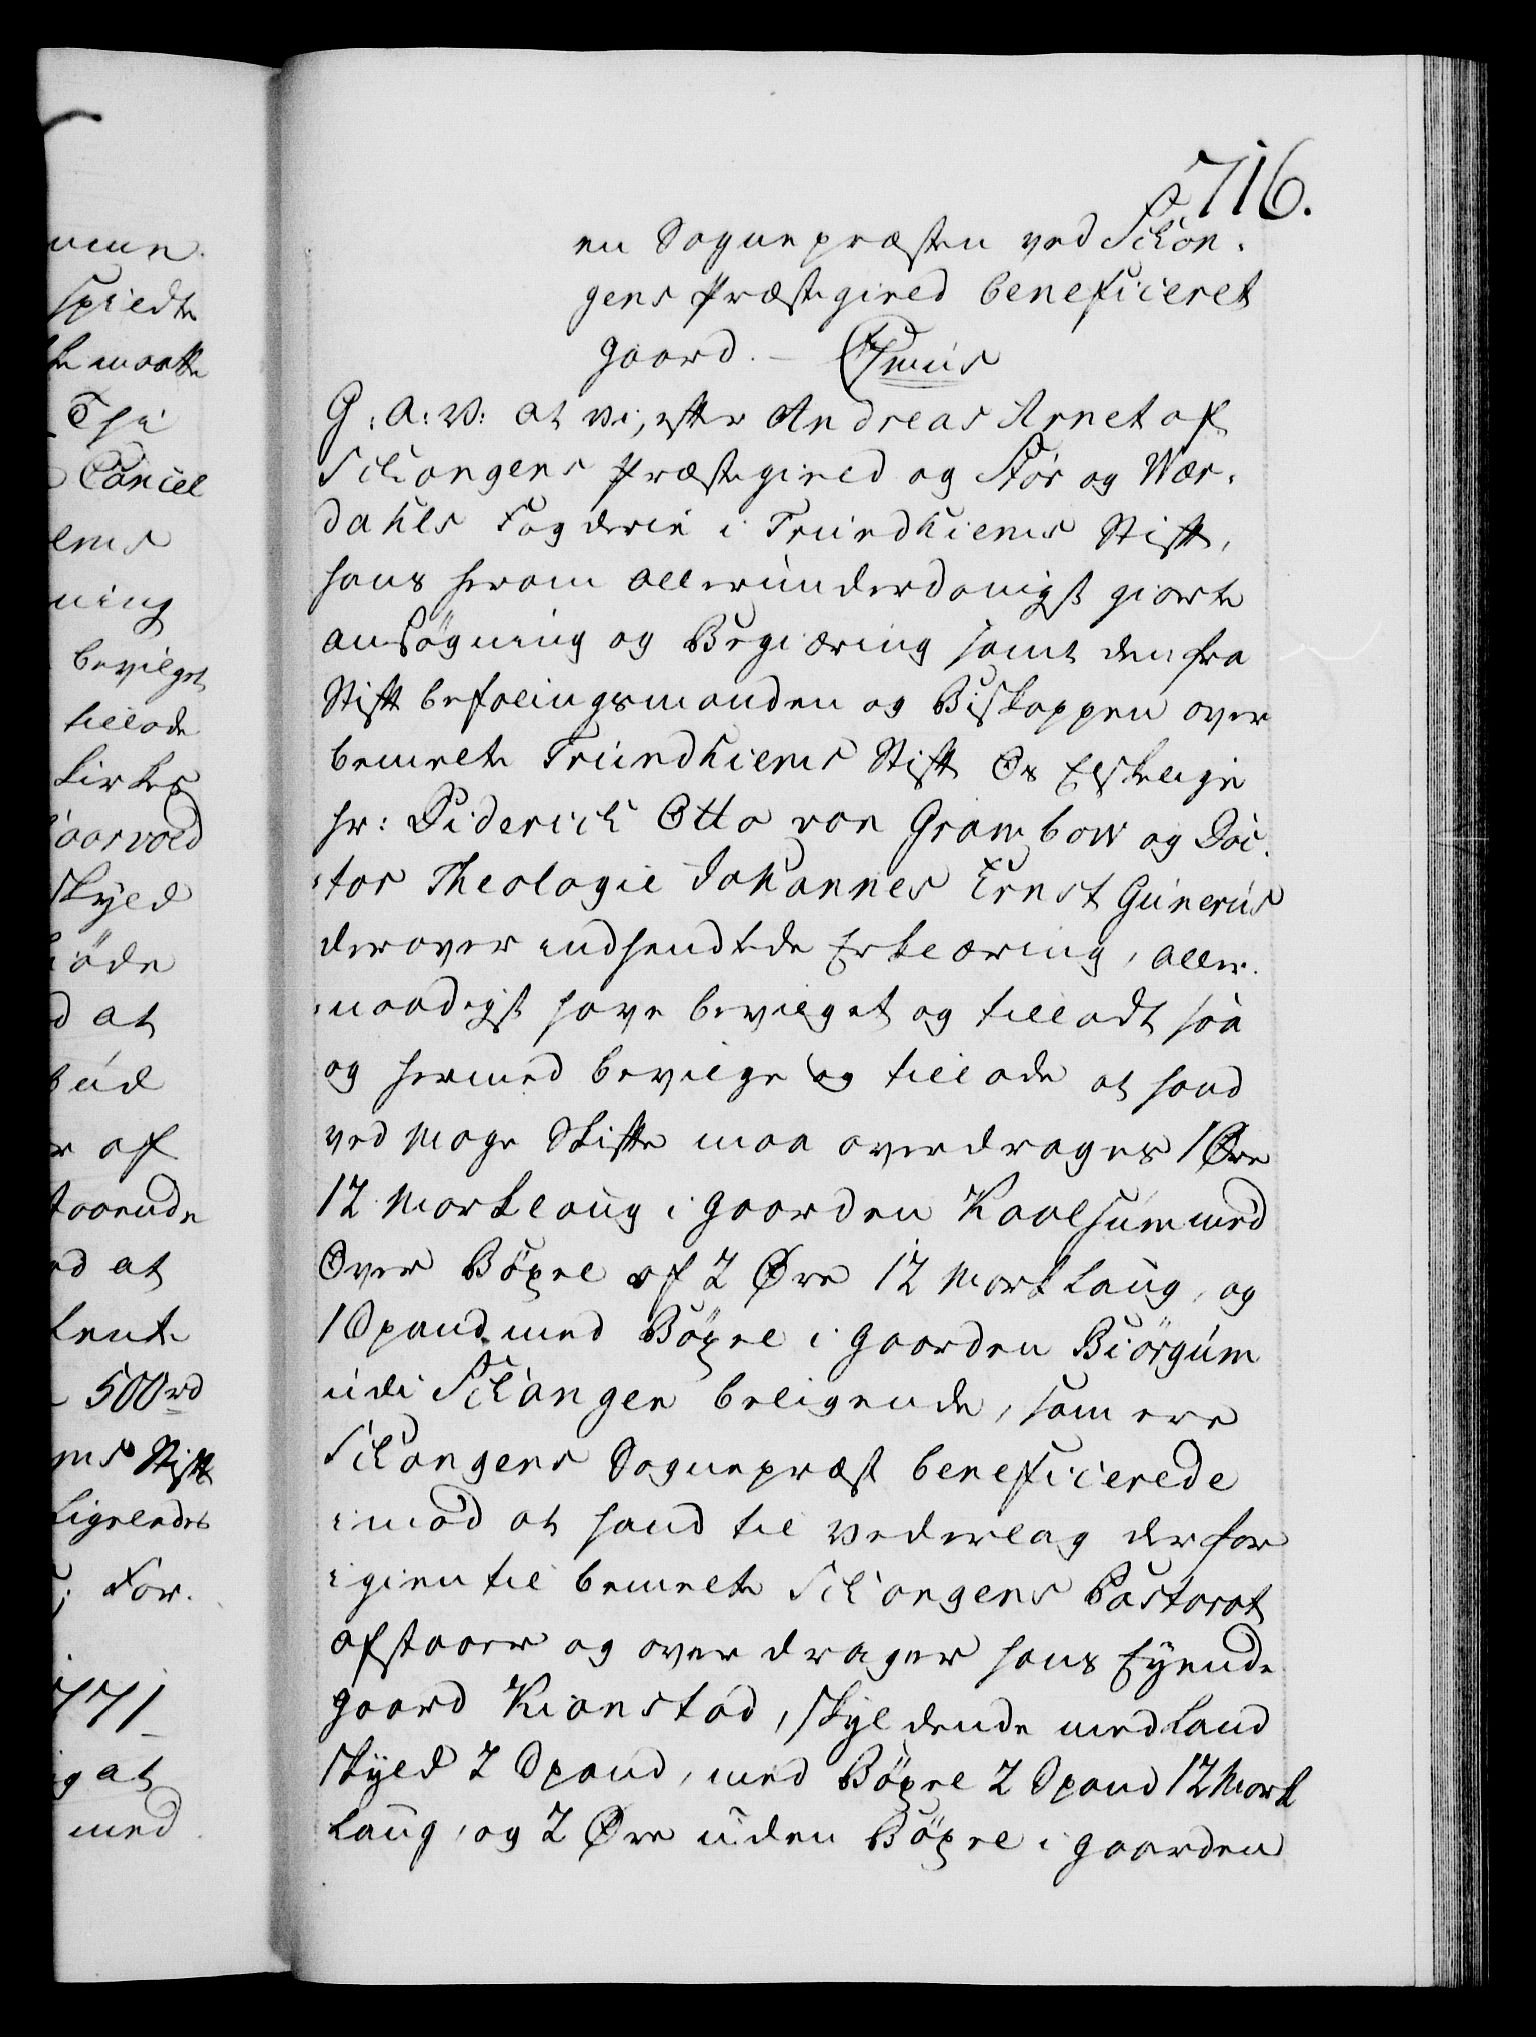 716.
en Sognepræsten ved Schon-
gens Præstegield beneficeret
gaard. —
G: A: V: at vi, efter Andreas Arnet af
Schongens Præstegield og Stør og Wær-
dahls Fogderie i Trundhiems Stift,
hans herom allerunderdanigst giorte
ansøgning og Begiæring samt den fra
Stiftbefalingsmanden og Biskoppen over
bemelte Trundhiems Stift Os Elskelige
Hr: Diderich Otto von Grambow og Doc-
tor Theologie Johannes Ernst Gunerus
derover indsendte Erklæring, aller-
naadigst have bevilget og tilladt saa
og hermed bevilge og tillade at hand
ved Mage Skifte maa overdrages 1 Øre
12 Marklaug i gaarden Kaalsum med
Over Böxel af 2 Øre 12 Mark laug, og
1 Spand med Böxel i gaarden Biörgum
udi Schongen beligende, som ere
Schongens Sognepræst beneficerede
imod at hand til vederlag derfor
igien til bemelte Schongens Pastorat
afstaaer og overdrager hans Eyende
gaard Kionstad, skyldende med land
skyld 2 Spand, med Böxel 2 Spand 12 Mark
laug, og 2 Øre uden Böxel i gaarden